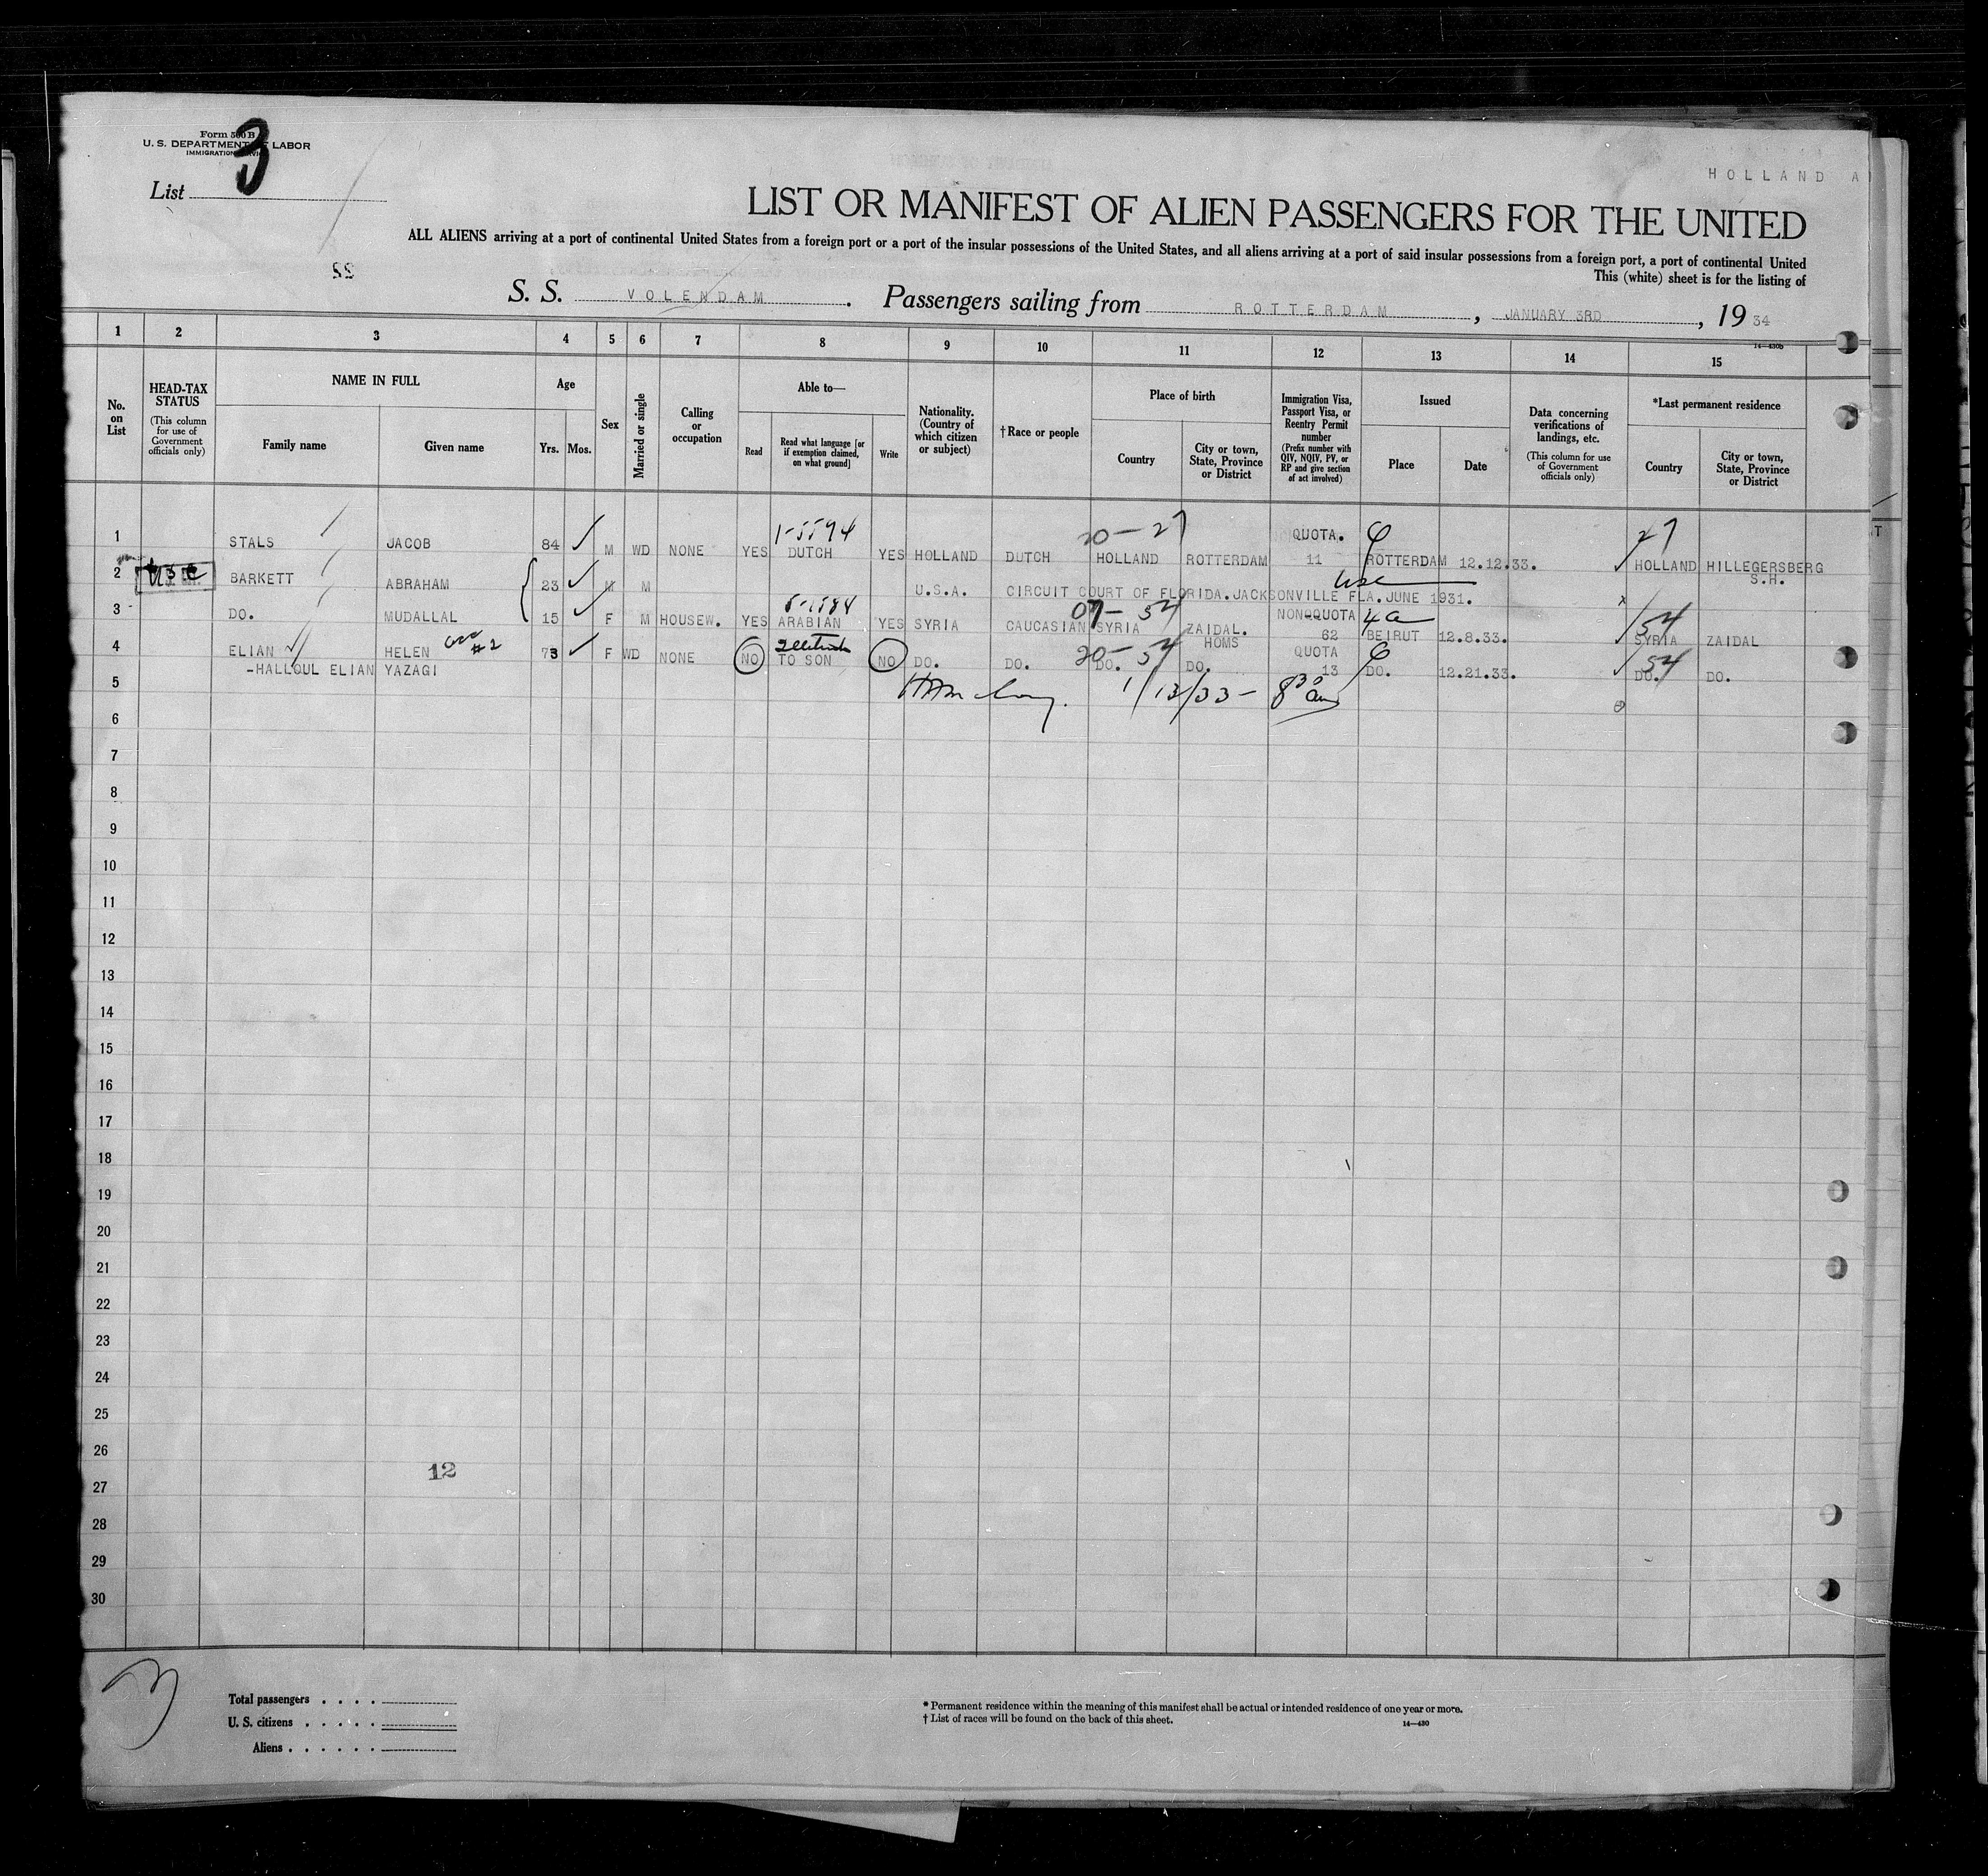 Form 500 B
U. S. DEPARTMENT OF LABOR
IMMIGRATION SERVICE
3
List
HOLLAND A
LIST OR MANIFEST OF ALIEN PASSENGERS FOR THE UNITED
ALL ALIENS arriving at a port of continental United States from a foreign port or a port of the insular possessions of the United States, and all aliens arriving at a port of said insular possessions from a foreign port, a port of continental United
This (white) sheet is for the listing of
S. S. VOLENDAM. Passengers sailing from ROTTERDAM, JANUARY 3RD, 19 34
1 2 3 4 5 6 7 8 9 10 11 12 13 14 15
No. on List
HEAD-TAX STATUS
(This column for use of Government officials only)
NAME IN FULL
Family name
Given name
Age
Yrs. Mos.
Sex
Married or single
Calling or occupation
Able to—
Read
Read what language [or if exemption claimed, on what ground]
Write
Nationality. (Country of which citizen or subject)
†Race or people
Place of birth
Country
City or town, State, Province or District
Immigration Visa, Passport Visa, or Reentry Permit number
(Prefix number with QIV, NQIV, PV, or RP and give section of act involved)
Issued
Place
Date
Data concerning verifications of landings, etc.
(This column for use of Government officials only)
*Last permanent residence
Country
City or town, State, Province or District
1-5594 20-27 QUOTA. 27
1 STALS JACOB 84 M WD NONE YES DUTCH YES HOLLAND DUTCH HOLLAND ROTTERDAM 11 ROTTERDAM 12.12.33. HOLLAND HILLEGERSBERG S.H.
2 USC BARKETT ABRAHAM 23 M M U.S.A. CIRCUIT COURT OF FLORIDA.JACKSONVILLE FLA.JUNE 1931. USC
07-54 NONQUOTA 4a 54
3 DO. MUDALLAL 15 F M HOUSEW. YES ARABIAN YES SYRIA CAUCASIAN SYRIA ZAIDAL. HOMS 62 BEIRUT 12.8.33. SYRIA ZAIDAL
20-54 QUOTA 54
4 ELIAN HELEN #2 73 F WD NONE NO TO SON NO DO. DO. DO. DO. 13 DO. 12.21.33. DO. DO.
-HALLOUL ELIAN YAZAGI
5 1/13/33 - 8 30 am
6
7
8
9
10
11
12
13
14
15
16
17
18
19
20
21
22
23
24
25
26
12
27
28
29
30
3
Total passengers
U. S. citizens
Aliens
* Permanent residence within the meaning of this manifest shall be actual or intended residence of one year or more.
† List of races will be found on the back of this sheet.
14—430